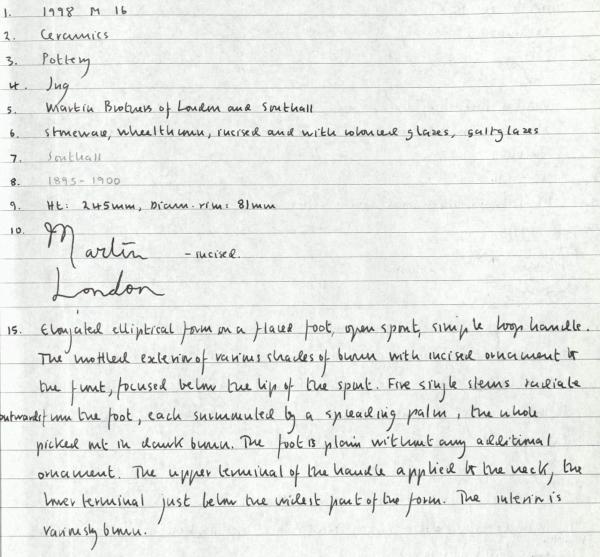 1. 1998 M 16
2. Ceramics
3. Pottery
4. Jug
5. Martin Brothers of London and Southall
6. stoneware, wheelthrown, incised and with coloured glazes, saltglazes
7. Southall
8. 1895-1900
9. Ht: 245mm, Diam. rim: 81mm
10. Martin - incised.
London
15. Elongated elliptical form on a flared foot, open spout, simple loop handle.
The mottled exterior of various shades of brown with incised ornament to
the front, focused below the lip of the spout. Five single stems radiate
outwards from the foot, each surmounted by a spreading palm, the whole
picked out in dark brown. The foot is plain without any additional
ornament. The upper terminal of the handle applied to the neck, the
lower terminal just below the widest part of the form. The interior is
variously brown.